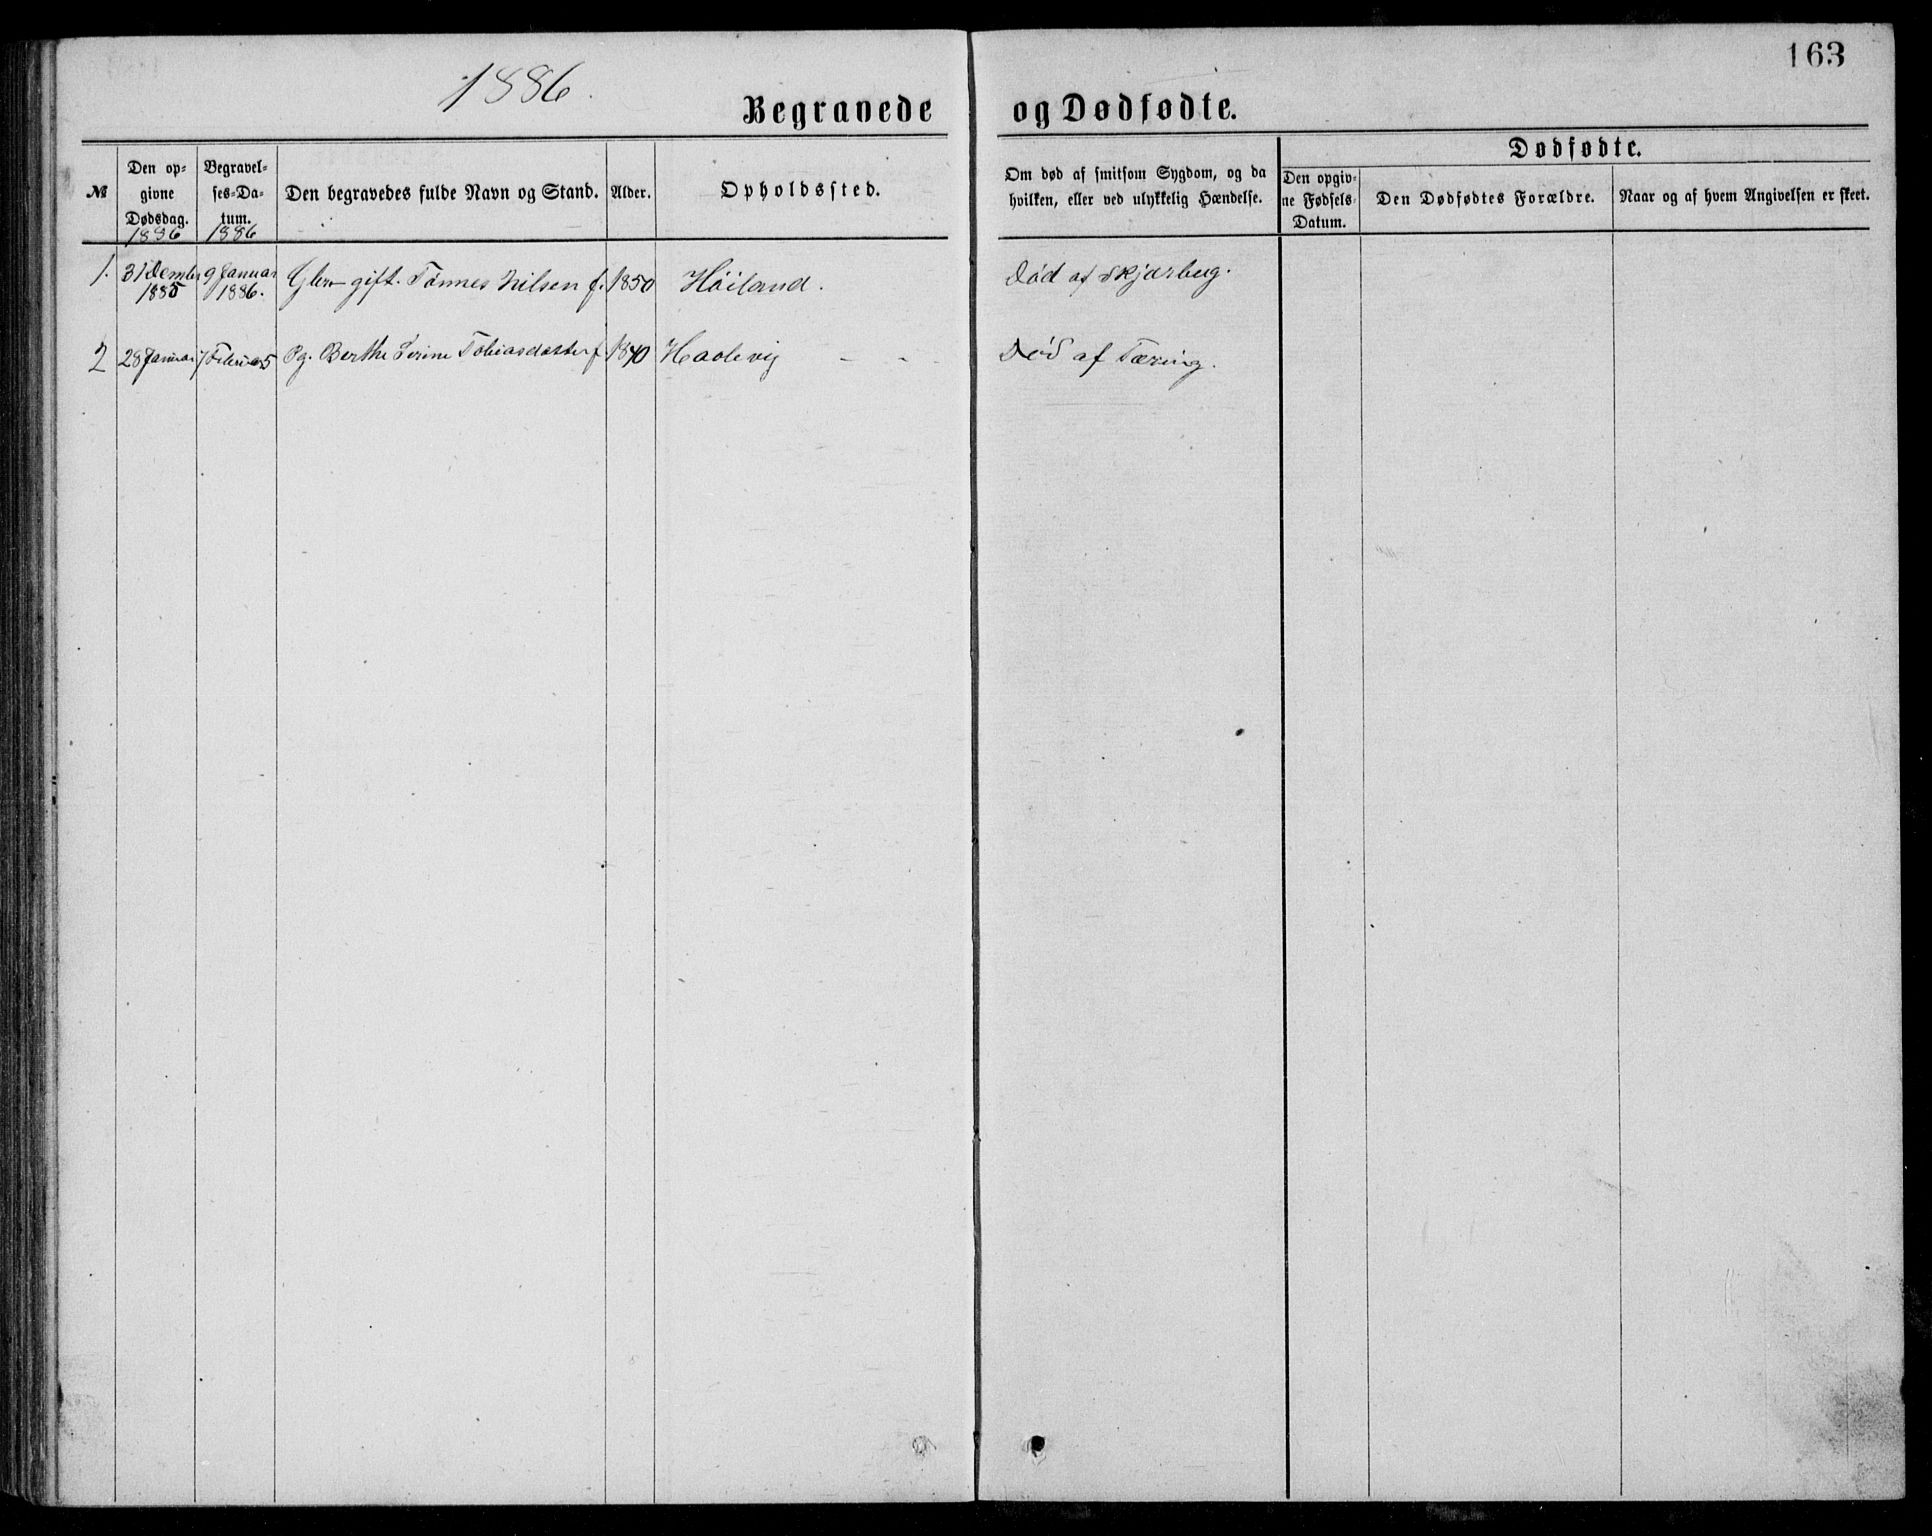 163
1886.
Begravede og Dødfødte.
№
Den opgivne Dødsdag.
1886
Begravelses-Datum.
1886
Den begravedes fulde Navn og Stand.
Alder.
Opholdssted.
Om død af smitsom Sygdom, og da hvilken, eller ved ulykkelig Hændelse.
Dødfødte.
Den opgivne Fødsels-Datum.
Den Dødfødtes Forældre.
Naar og af hvem Angivelsen er skeet.
1. 31 Dember 1885 9 Januar 1886. gift. Tønnes Nilsen f. 1850 Höiland. Död af
2 28 Januar 5 Pg. Berthe Serine Tobiasdatter f 1840 Haalevig - - Död af Tæring.